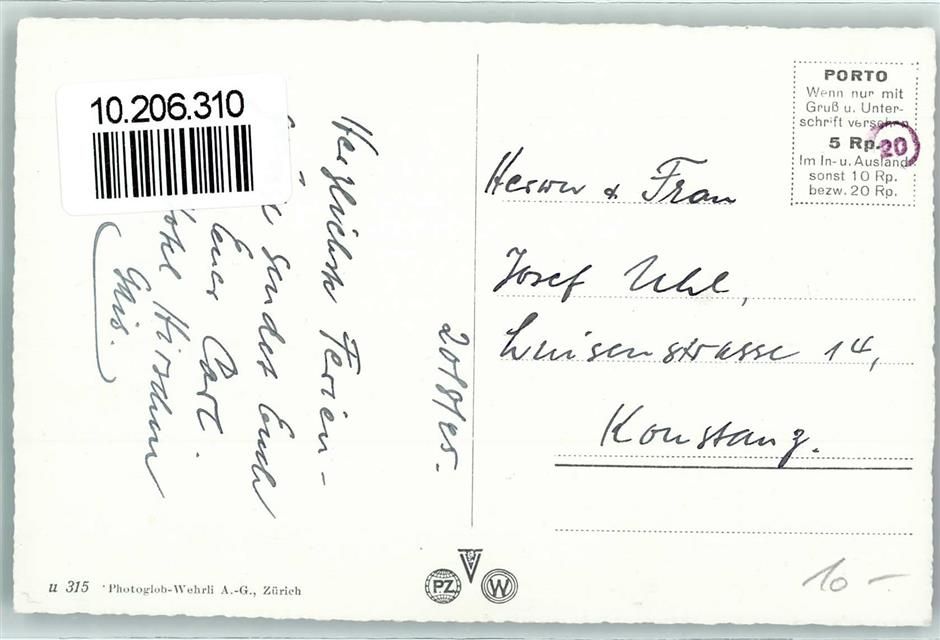 10.206.310
20/8/25.
Herzlichste Ferien-
sendet Euch
Euer Carl.
Hotel Hirschen
Gais.
PORTO
Wenn nur mit
Gruß u. Unter-
schrift versehen
5 Rp.
20
Im In- u. Ausland
sonst 10 Rp.
bezw. 20 Rp.
Herrn & Frau
Josef Uhl,
Luisenstrasse 14,
Konstanz.
u 315 Photoglob-Wehrli A.-G., Zürich
PZ
W
10-